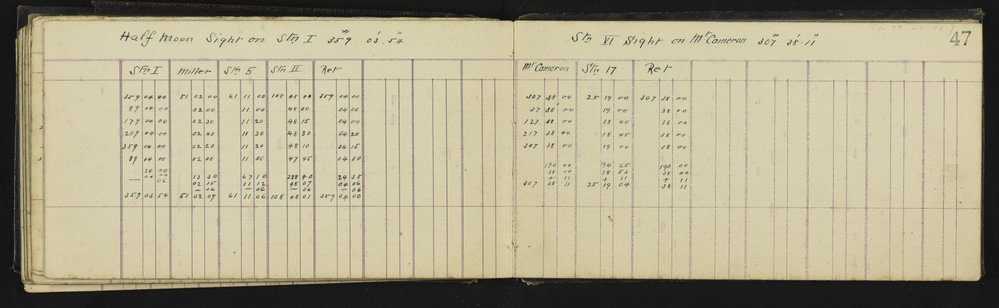 Half Moon Sight on Stn I 359° 03' 54"
Stn I Miller Stn 5 Stn II Ret
359 04 00 51 02 00 61 11 00 108 48 00 359 04 00
89 04 00 02 00 11 00 48 00 04 00
179 04 00 02 30 11 20 48 15 04 00
269 04 00 02 40 11 30 48 30 04 20
359 04 00 02 20 11 20 48 10 04 15
89 04 00 02 00 11 00 47 45 04 00
24 00 13 30 67 10 288 40 24 35
02 15 11 12 48 07 04 06
06 06 06 06
359 03 54 51 02 09 61 11 06 108 48 01 359 04 00
47
Stn VI Sight on Mr Cameron 307° 38' 11"
Mr Cameron Stn 17 Ret
307 38 00 25 19 00 307 38 00
37 38 00 19 00 38 00
127 38 00 38 00
217 38 00 18 45 38 00
307 38 00 19 00 38 00
190 00 94 25 190 00
38 00 18 53 38 00
+ 11 + 11 + 11
307 38 11 25 19 04 38 11